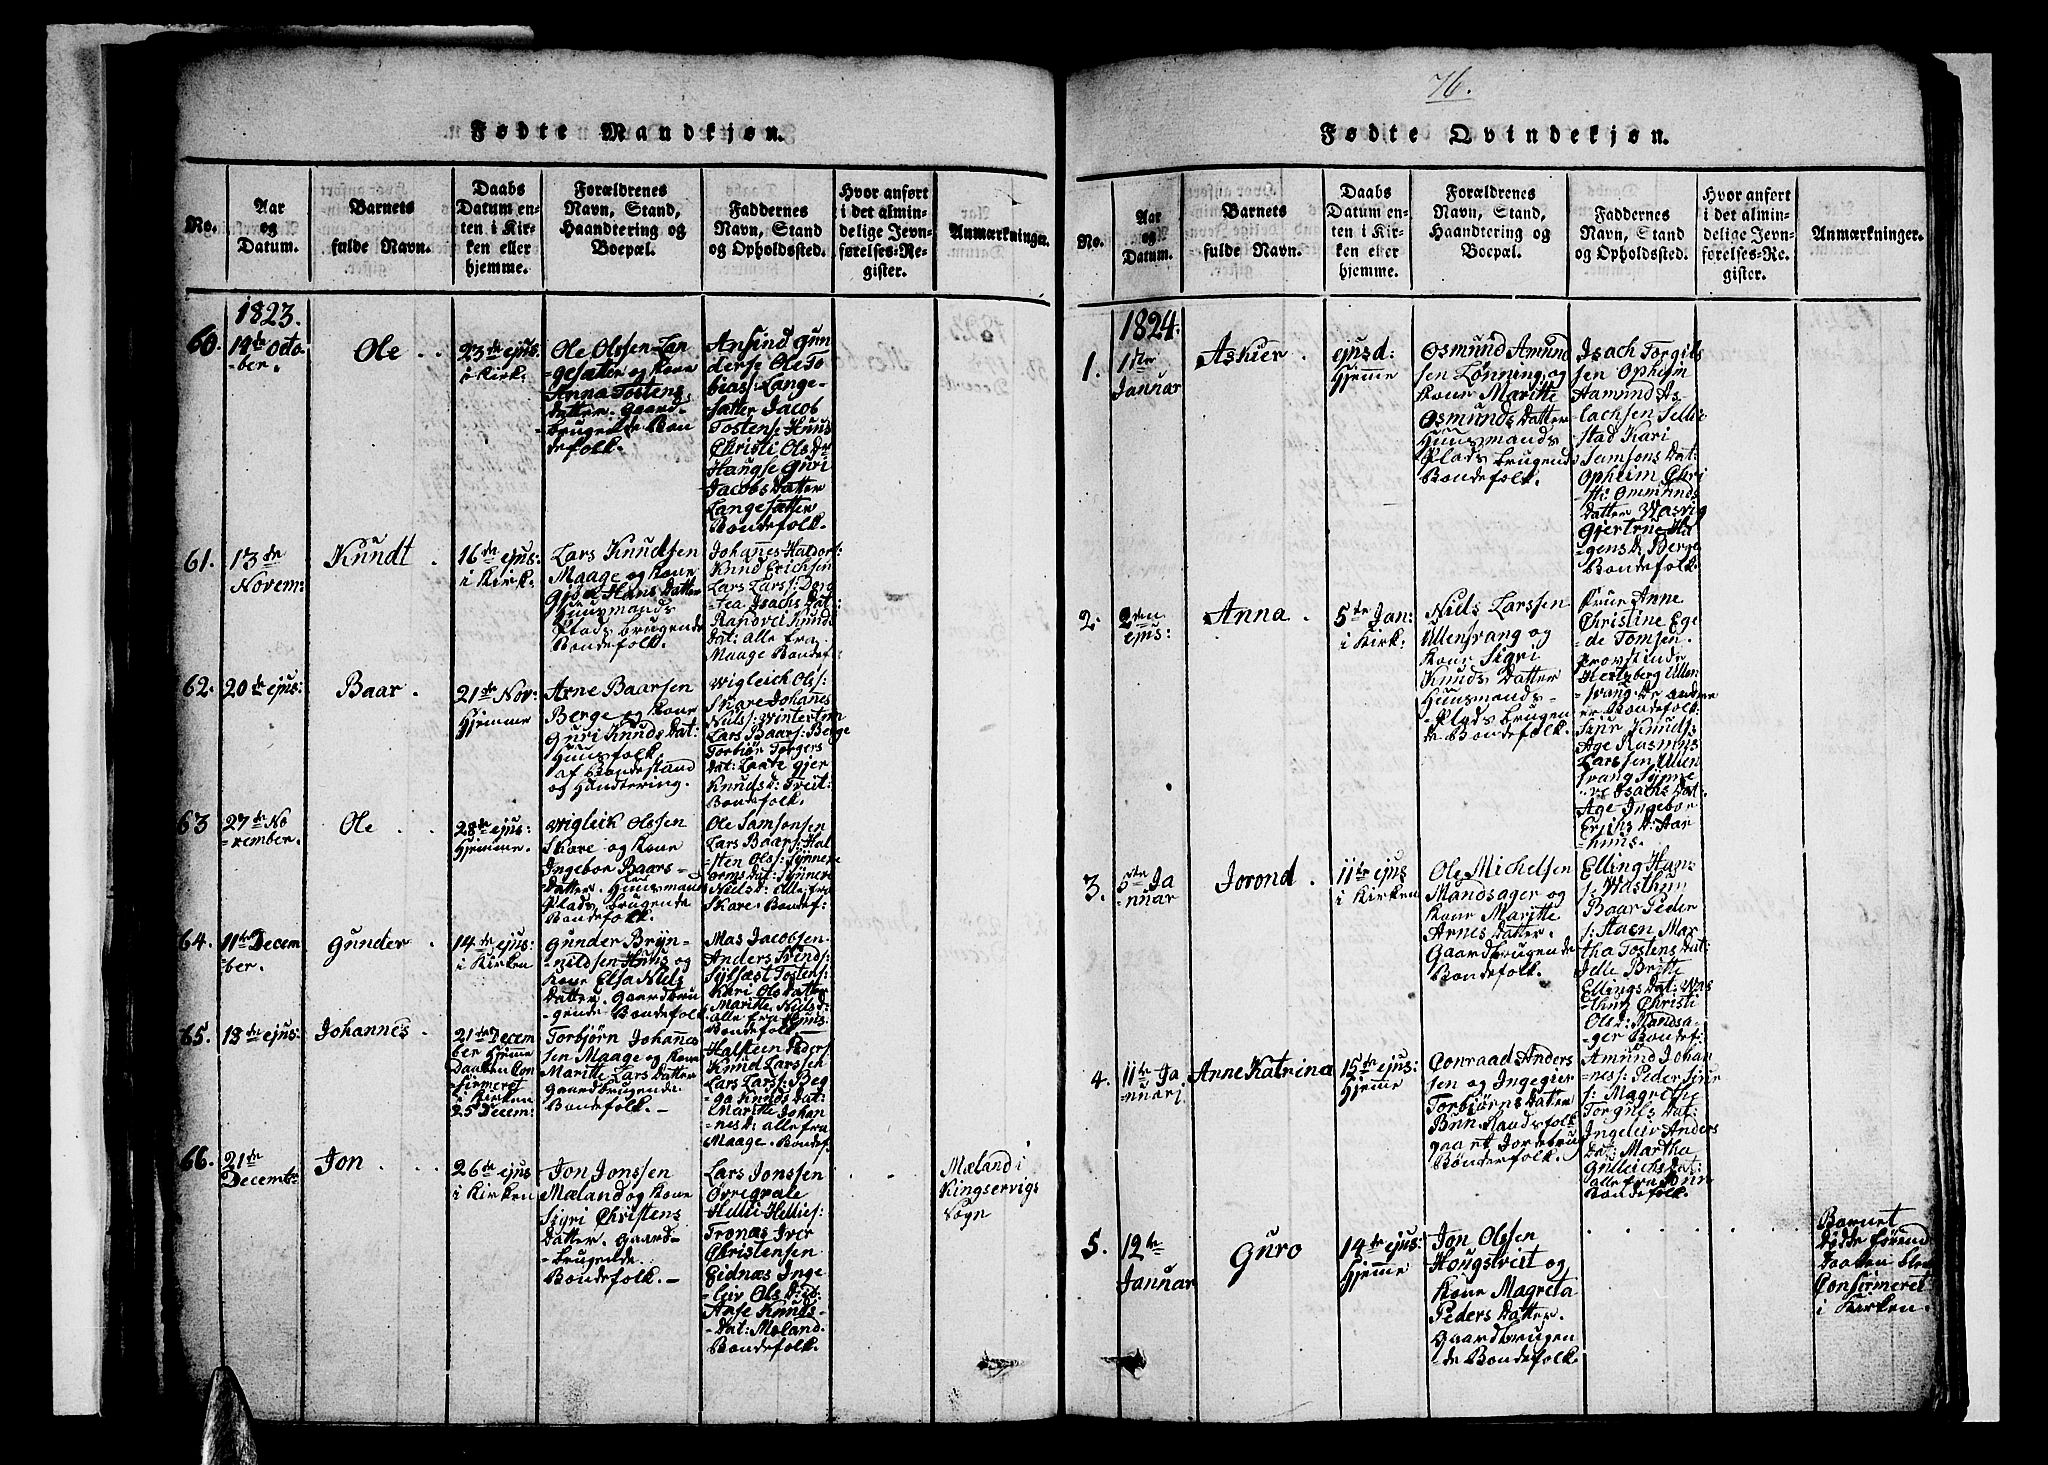 76.
Fødte Mandkjøn.
No.
Aar
og
Datum.
Barnets
fulde Navn.
Daabs
Datum en-
ten i Kir-
ken eller
hjemme.
Forældrenes
Navn, Stand,
Haandtering og
Boepæl.
Faddernes
Navn, Stand
og Opholdssted.
Hvor anført
i det almin-
delige Jevn-
førelses-Re-
gister.
Anmærkninger.
1823.
60.
19de Octo-
-ber.
Ole
23de ejus:
i Kirk.
Ole Olssen Lan
-gesæter og Kone
Anna Tostens
Datter. Gaard-
-brugende Bon
defolk.
Ansind Gun
ders: Ole To
bias: Lange-
sætter Jacob
Tostens: Huus
Christi Ols dr
Haugse Guri
Jacobs Datter
Langesætter
Bondefolk.
61.
13de
Novem:
Knudt
16de ejus:
i Kirk.
Lars Knudsen
Maage og Kone
Hans Datter
Huusmands
Plads brugende
Bondefolk.
Johannes Haldors:
Knud Erichsen
Lars Lars: Doro
-tea Isachs Dat:
Ranvei Knuds
Dat: alle fra
Maage Bondef.
62.
20de ejus:
Baar
21de Nov:
Hjemme
Arne Baarsen
Berge og Kone
Guri Knuds Dat:
Huusfolk
af Bondestand
og Handtering.
Wigleich Ols:
Skare Johannes
Niels: Wintertun
Lars Baars: Berge
Torbiør Torgers
Dat: Laate Gjer
Knudsd: Treit:
Bondefolk.
63
27de No
vember.
Ole
28de ejus:
Hjemme.
Wigleik Olssen
Skare og Kone
Ingebor Baars-
Datter. Huusmands
Plads brugende
Bondefolk.
Ole Samsonsen
Lars Baars: Hal
-sten Ols: Synneve
Orms Dat: Synneve
Nielsd: alle fra
Skare. Bondef:
64.
11te Decem
-ber.
Gunder
14de ejus:
i Kirken
Gunder Bryn-
-nildsen Huus og
Kone Elsa Niels
Datter. Gaardbru
-gende Bondefolk
Mas Jacobsen
Anders Trinds:
Sylfæst Tostens:
Kari Ols Datter
Maritte Nielsd:
alle fra Huus:
Bondefolk
65.
18de ejus:
Johannes
21de Decem
ber Hjemme
Daaben Con
-firmeret
i Kirken
25 Decem:
Torbjørn Johannes
sen Maage og Kone
Maritte Lars Datter
Gaardbrugende
Bondefolk.
Halsteen Peders:
Knud Larssen
Lars Lars: Beg
-ga Knuds Dat:
Maritte Johan
-nesd: alle fra
Maage. Bondef.
66.
21de
Decemb:
Jon
26de ejus
i Kirken
Jon Jonssen
Mæland og Kone
Sigri Christens
Datter. Gaard-
-brugende
Bondefolk.
Lars Jonssen
Ørregrale
Hellei Helleis:
Tronæs Iver
Christensen
Eidnæs Inge
-leiv Ols Dtr
Anse Knuds-
-dat: Mæland.
Bondefolk.
Mæland i
Kingservigs
Sogn
Fødte Qvindekjøn.
No.
Aar
og
Datum.
Barnets
fulde Navn.
Daabs
Datum en-
ten i Kir-
ken eller
hjemme.
Forældrenes
Navn, Stand,
Haandtering og
Boepæl.
Faddernes
Navn, Stand
og Opholdssted.
Hvor anført
i det almin-
delige Jevn-
førelses-Re-
gister.
Anmærkninger.
1824.
1.
1ste
Januar
Askier
ejusd:
Hjemme
Osmund Amund
sen Lønning og
Kone Maritte
Osmunds Datter
Huusmands
Plads brugende
Bondefolk.
Isach Torgils
sen Opheim
Aamund As
lachsen Selle
stad Kari
Samsons Dat:
Opheim Chri
sti Ommunds
Datter Wasvig
Gjertrue Ha
-gens d: Berge
Bondefolk.
2.
2den
ejus:
Anna
5te Jan:
i Kirk:
Niels Larssen
Ullensvang og
Kone Sigri
Knuds Datter
Huusmands-
-Plads brugen
de Bondefolk.
Frue Anne
Christine Ege
de Tomsen.
Provstinde
Hertzberg Ullen
-svang De andre
er Bondefolk.
Siur Knuds:
Age Rasmus
Larssen Ullen
svang Synne
ve Isachs Dat:
Age Ingebor
Erichs d: Aar
-huus.
3.
5te Ja
-nuar
Jorond
11te ejus
i Kirken
Ole Michelsen
Mandsager og
Kone Maritte
Arnes Datter.
Gaardbrugende
Bondefolk.
Elling Han-
s: Wasthun
Baar Peder
s: Haen Mar
tha Tostens Dat:
Jelle Britte
Ellings Dat: Was
thun Christi
Olsd: Mandsa-
ger Bondef:
4.
11te Ja
-nuar
Anne Katrina
15de ejus:
Hjemme
Conraad Anders
sen og Ingegier
Torbjørns Datter
Bnn Haudsfolk
gaard Jordebru
Bønderfolk.
Amund Johan
nes: Peder Siur
s: Magrethe
Torgnes Dat:
Ingeleiv Anders
Dat: Martha
Gulleichs dat:
alle fra Bnn
Bondefolk.
5.
12te
Januar
Guro
14de ejus:
Hjemme
Jon Olssen
Hougstveit og
Kone Magreta
Peders Datter.
Gaardbrugen
-de Bondefolk.
Barnet
Døde førend
Daaben blev
Confirmeret
i Kirken.